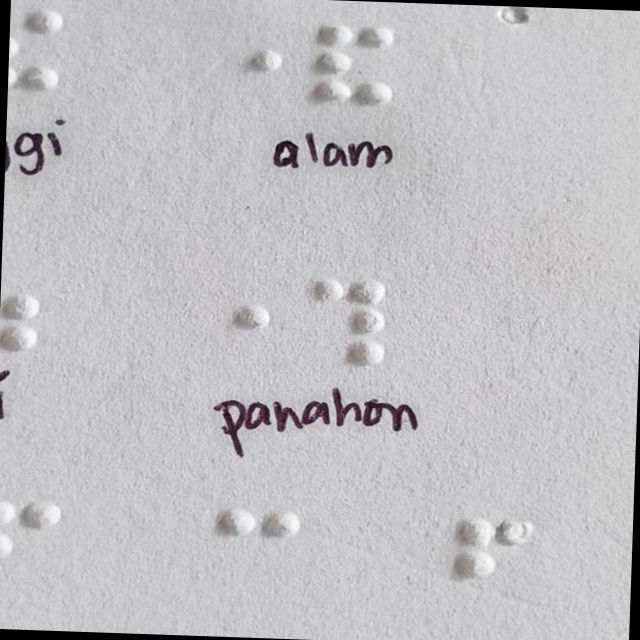 ⠐⠯
alam
⠐⠹
panahon
⠉ ⠋